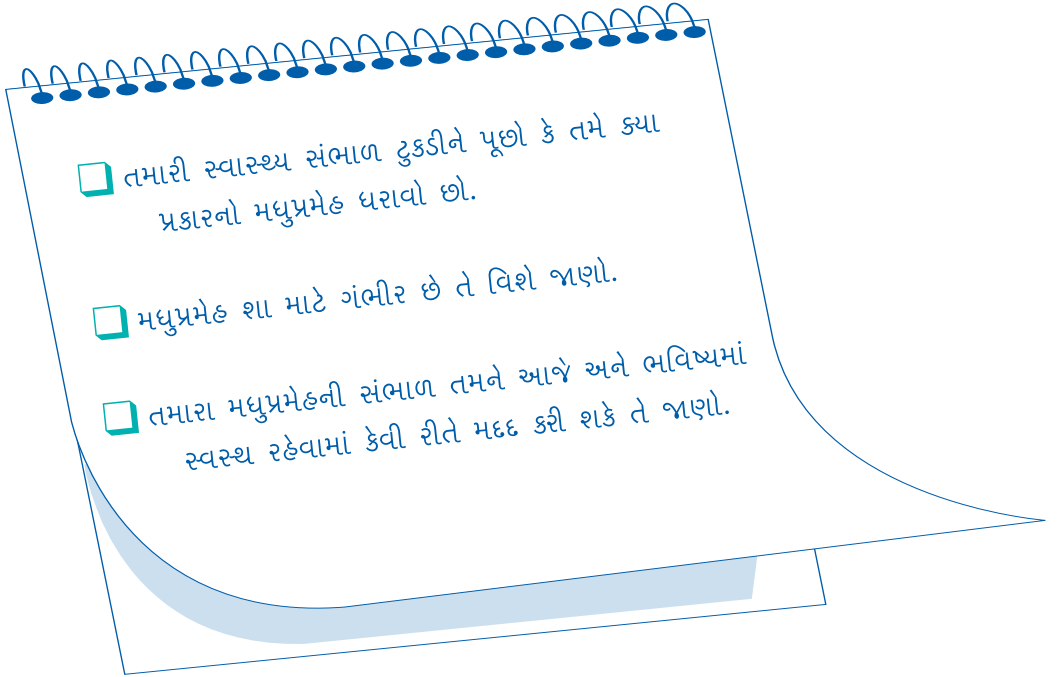 તમારી સ્વાસ્થ્ય સંભાળ ટુકડીને પૂછો કે તમે ક્યા
પ્રકારનો મધુપ્રમેહ ધરાવો છો.
મધુપ્રમેહ શા માટે ગંભીર છે તે વિશે જાણો.
તમારા મધુપ્રમેહની સંભાળ તમને આજે અને ભવિષ્યમાં
સ્વસ્થ રહેવામાં કેવી રીતે મદદ કરી શકે તે જાણો.